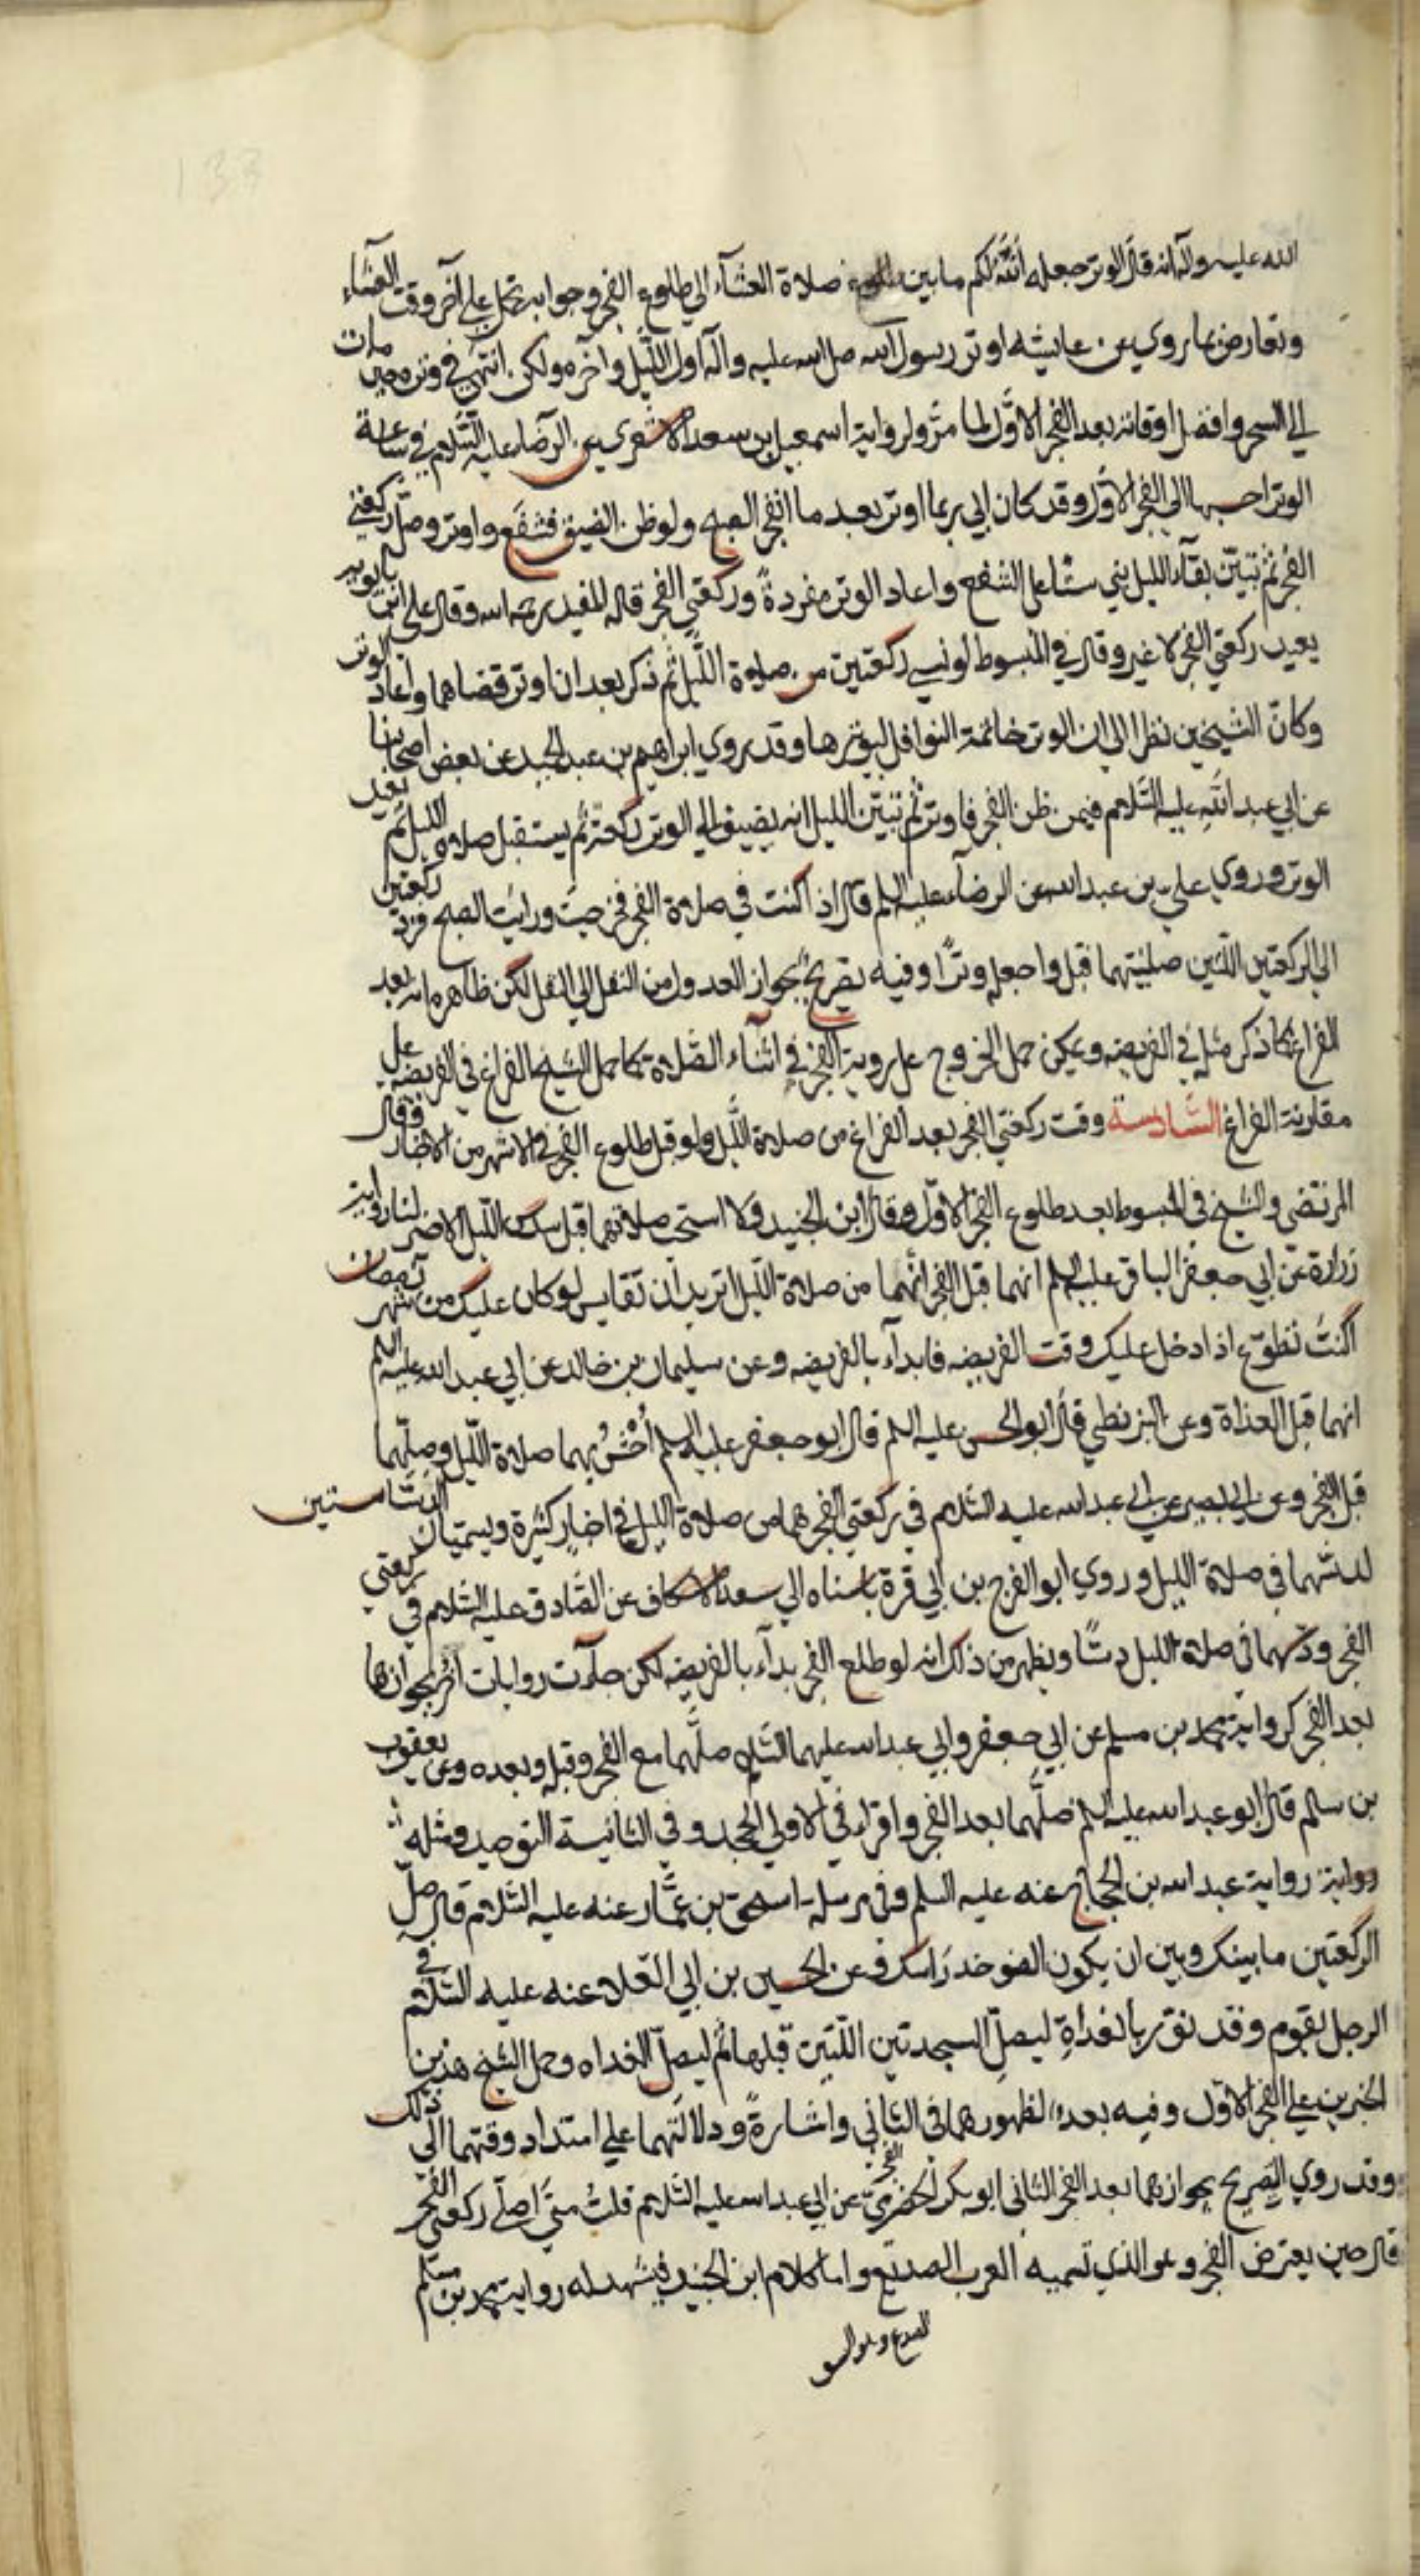 الله عليه وآله انه قال الوتر جعله الله لكم ما بين صلاة العشآء الي طلوع الفجر وجوابه يحمل علي آخر وقت العشاء
وتعارض بما روي عن عايشه اوتر رسول الله صل الله عليه وآله اول الليل وآخره ولكن انتهي في وتره حين مات
الي السحر وافضل اوقاته بعد الفجر الاوّل لما مرّ ولرواية اسمعيل بن سعد الاشعري عن الرضا عليه السّلم في ساعة
الوتر احبها الي الفجر الاوّل وقد كان ابي ربما اوتر بعد ما انفجر الصبح ولو ظن الضيق فشفع واوتر وصلّ ركعتي
الفجر ثم تبيّن بقآء الليل بني ستا علي الشفع واعاد الوتر مفردة وركعتي الفجر قاله المفيد رحمه الله وقال علي ابن بابويه
يعيد ركعتي الفجر لا غير وقال في المبسوط لو نسي ركعتين من صلوة اللّيل ثم ذكر بعد ان اوتر قضاهما واعاد الوتر
وكانّ الشيخين نظرا الي ان الوتر خاتمة النوافل ليوترها وقد روي ابراهيم بن عبد الحميد عن بعض اصحابنا
عن ابي عبد الله عليه السّلام فيمن ظن الفجر فاوتر ثم تبيّن الليل انه يضيف الي الوتر ركعة ثم يستقبل صلاة الليل ثم يعيد
الوتر وروي علي بن عبد الله عن الرضآ عليه السلم قال اذا كنت في صلاة الفجر فخرجت ورايت الصبح فزد ركعتين
الي الركعتين اللتين صليتهما قبل واجعله وترًا وفيه تصريحٌ بجواز العدول من النفل الي النفل لكن ظاهره انه بعد
الفراغ كما ذكر مثله في الفريضه ويمكن حمل الخروج علي روية الفجر في اثناء الصّلاة كما حمل الشيخ الفراغ في الفريضه علي
مقاربة الفراغ السّادسة وقت ركعتي الفجر بعد الفراغ من صلاة اللّيل ولو قبل طلوع الفجر في الاشهر من الاخبار وقال
المرتضي والشيخ في المبسوط بعد طلوع الفجر الاوّل وقال ابن الجنيد ولا استحب صلاتهما قبل سدس اللّيل الاخير لنا رواية
زرارة عن ابي جعفر الباقر عليه السلم انهما قبل الفجر انّهما من صلاة اللّيل اتريد ان تقايس لو كان عليك من شهر رمضان
اكنت تطوّع اذا دخل عليك وقت الفريضه فابدأ بالفريضه وعن سليمان بن خالد عن ابي عبد الله عليه السلم
انهما قبل الغداة وعن البزنطي قال ابو الحسن عليه السلم قال ابو جعفر عليه السلم احشُ بهما صلاة اللّيل وصلّهما
قبل الفجر وعن ابي بصير عن ابي عبد الله عليه السّلام في ركعتي الفجر هما من صلاة الليل في اخبارٍ كثيرة ويسميان الدسّاستين
لدسّهما في صلاة الليل وروي ابو الفرج بن ابي قرة باسناه الي سعد الاسكاف عن الصّادق عليه السّلام في ركعتي
الفجر ودسّهما في صلاة الليل دسًّا ويظهر من ذلك انه لو طلع الفجر بدأ بالفريضه لكن جآءت روايات اخر بجوازها
بعد الفجر كرواية محمد بن مسلم عن ابي جعفر وابي عبد الله عليهما السّلم صلّهما مع الفجر وقبله وبعده وعن يعقوب
بن سالم قال ابو عبد الله عليه السلم صلّهما بعد الفجر واقراء في الاولي الجحد وفي الثانية التوحيد ومثله
رواية رواية عبد الله بن الحجاج عنه عليه السلم وفي مرسله اسحق بن عمّار عنه عليه السّلام قال صلّ
الركعتين ما بينك وبين ان يكون الضو حذ راسك وعن الحسين بن ابي العلاء عنه عليه السّلام في
الرجل يقوم وقد نوّر بالغداةِ ليصلّ السجدتين اللّتين قبلها ثم ليصلّ الغداه وحمل الشيخ هذين
الخبرين علي الفجر الاوّل وفيه بعدٌ لظهورهما في الثاني واشارةً ودلالتهما علي امتداد وقتهما الي ذلك
وقد روي التصريح بجوازهما بعد الفجر الثاني ابو بكر الحضرميّ عن ابي عبد الله عليه السّلام قلتُ متي اصلّي ركعتي الفجر
قال حين يعترض الفجر وهو الذي تسميه العرب الصديع واما كلام ابن الجنيد فيشهد له رواية محمد بن مسلم